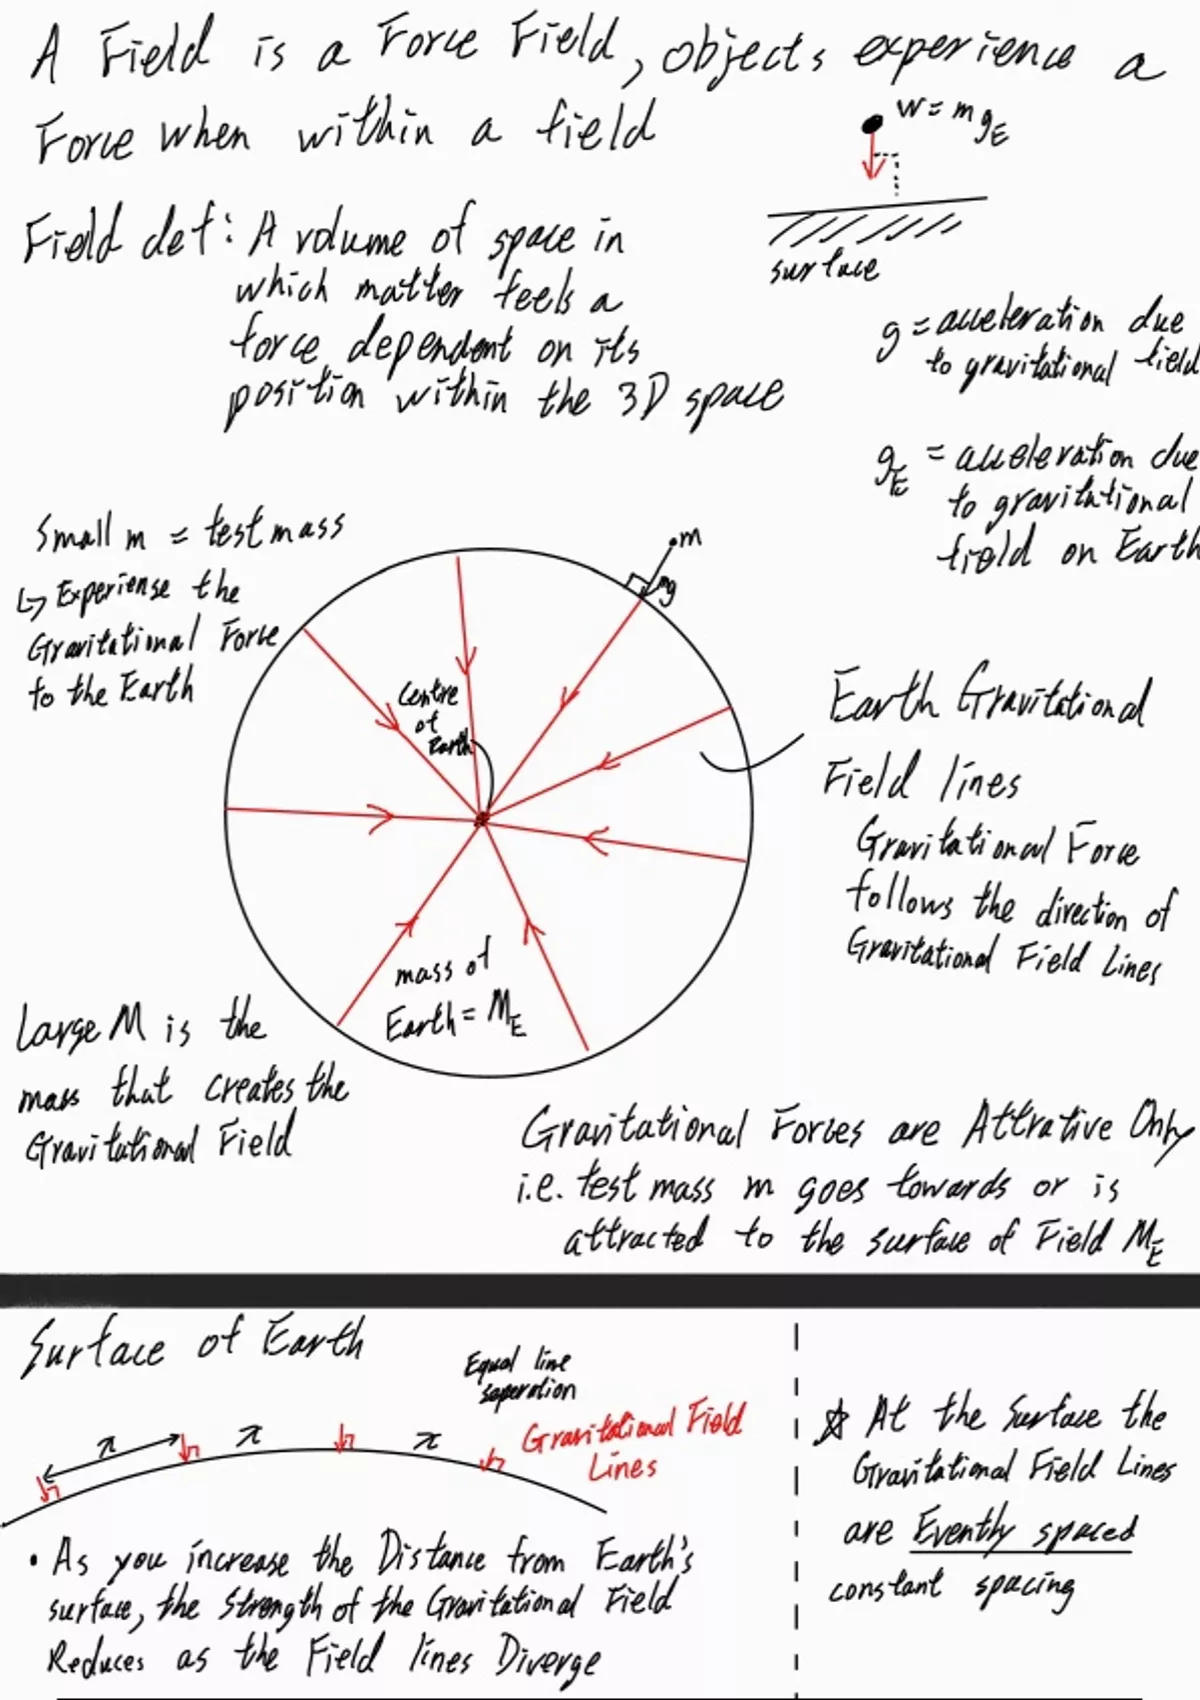 A Field is a Force Field, objects experience a
Force when within a field
w = m g_E
surface
Field def: A volume of space in
which matter feels a
force dependent on its
position within the 3D space
g = acceleration due
to gravitational field
g_E = acceleration due
to gravitational
field on Earth
Small m = test mass
↳ Experiense the
Gravitational Force
to the Earth
m
mg
Centre
of
Earth
Earth Gravitational
Field lines
Gravitational Force
follows the direction of
Gravitational Field Lines
mass of
Earth = M_E
Large M is the
mass that creates the
Gravitational Field
Gravitational Forces are Attrative Only
i.e. test mass m goes towards or is
attracted to the surface of Field M_E
Surface of Earth
Equal line
seperation
x x x
Gravitational Field
Lines
• As you increase the Distance from Earth's
surface, the Strength of the Gravitational Field
Reduces as the Field lines Diverge
☆ At the Surface the
Gravitational Field Lines
are Evently spaced
constant spacing